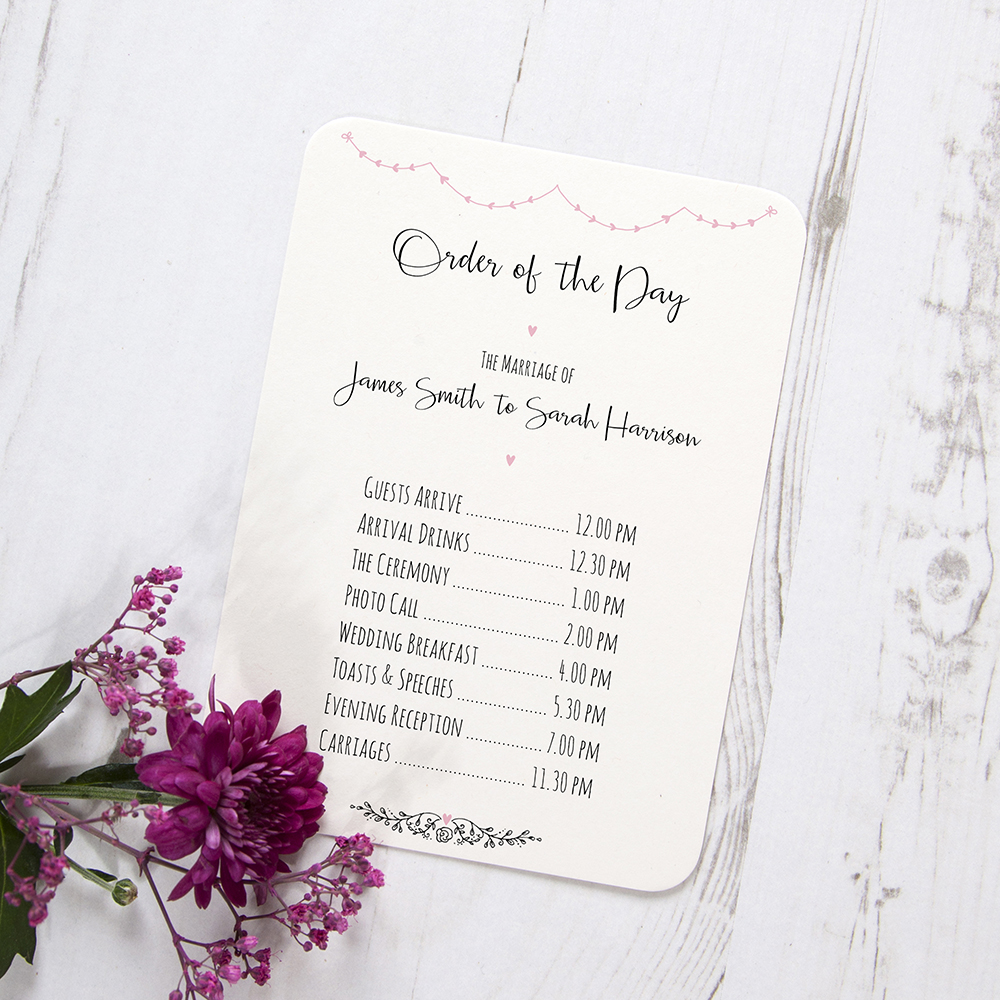 Order of the Day
The Marriage of
James Smith to Sarah Harrison
Guests Arrive ..................... 12.00 pm
Arrival Drinks ................... 12.30 pm
The Ceremony ....................... 1.00 pm
Photo Call ............................ 2.00 pm
Wedding Breakfast ............... 4.00 pm
Toasts & Speeches .................. 5.30 pm
Evening Reception ................ 7.00 pm
Carriages ........................... 11.30 pm